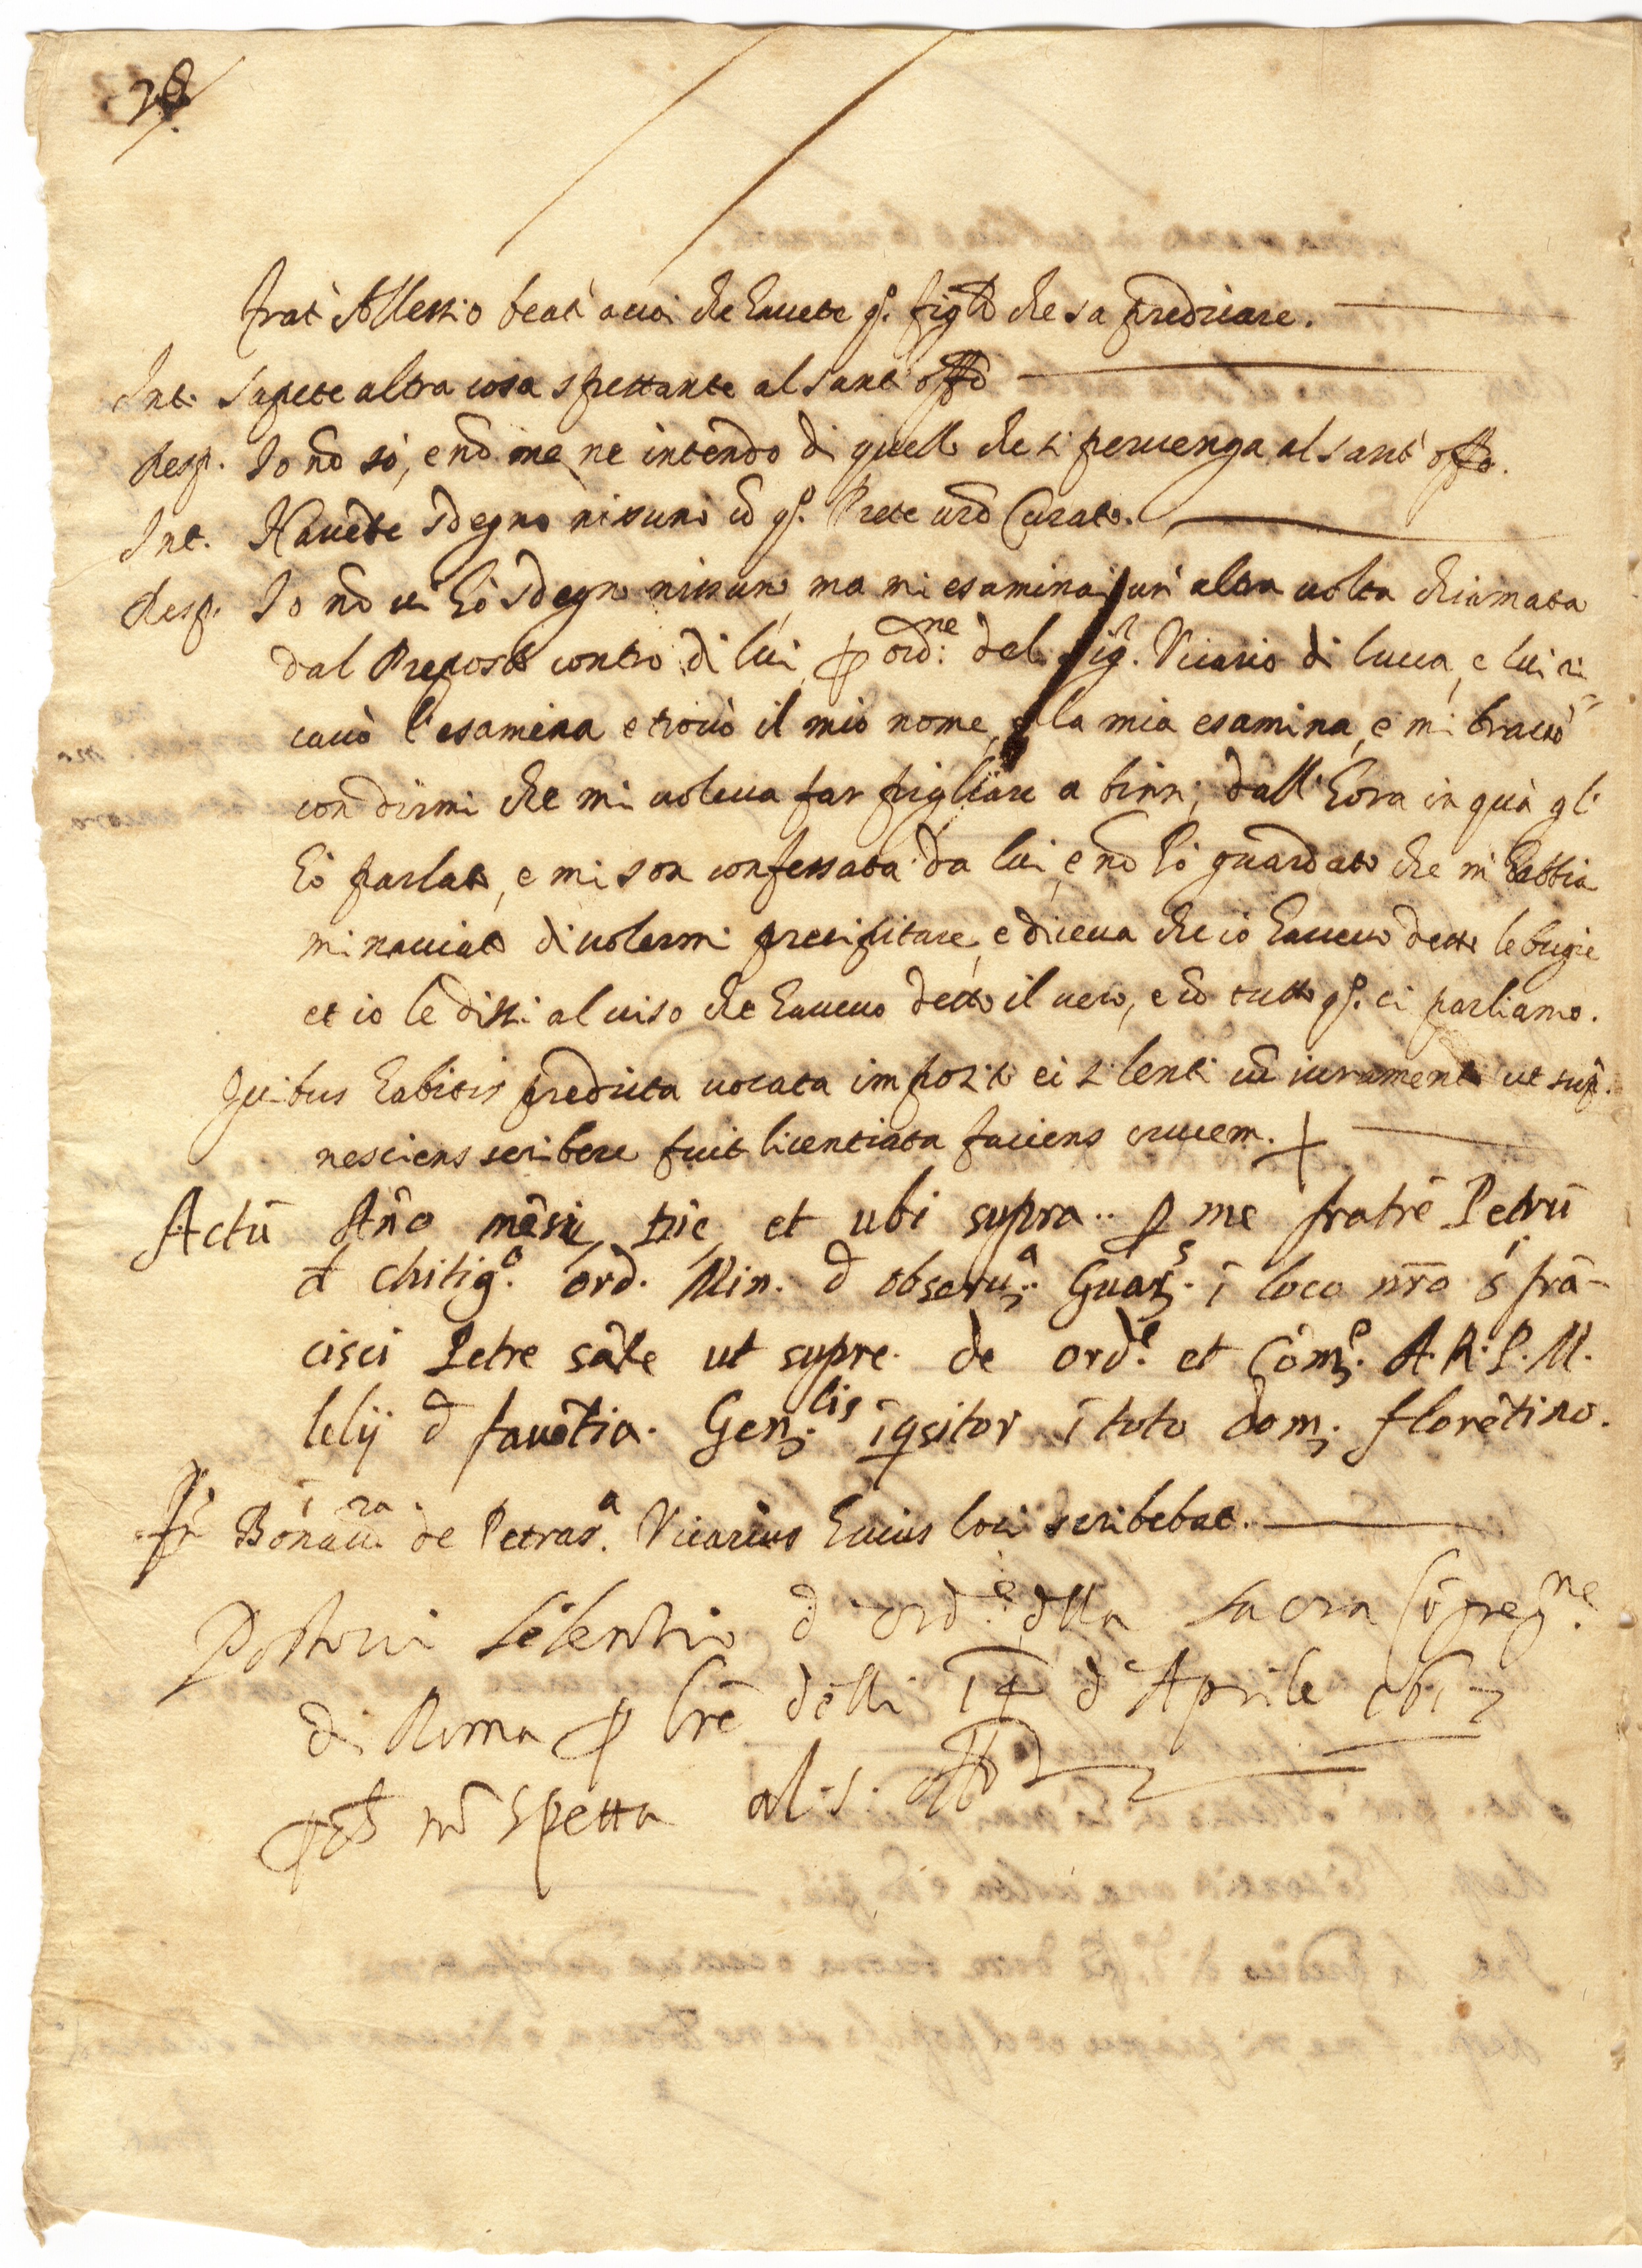 frat' Allessio beat' a voi che havete qo. figlio che sa predicare.
Int. Sapete altra cosa spettante al sant' offo
Resp. Io nō sò, e nō me ne intendo di quello che si pervenga al sant' offo.
Int. Havete sdegno nissuno cō qo. Prete vrō Curato.
Resp. Io nō vi hò sdegno nissuno, ma mi esaminai un' altra volta chiamata
dal Preposto contro di lui, p ord:ne del Sigr. Vicario di lucca, e lui ri=
cavò l'esamina e trovò il mio nome, e la mia esamina, e mi bravò
con dirmi che mi voleva far pigliare a birri, dall' hora in quà gli
hò parlato, e mi son confessata da lui, e nō hò guardato che mi habbia
minacciato di volermi precipitare, e diceva che io havevo dette le bugie
et io le dissi al viso che havevo detto il vero, e cō tutto qo. ci parliamo.
Quibus habitis predicta vocata imposito ei silentio cū iuramento ut supr.
nesciens scribere fuit licentiata faciens crucem. +
Actū Anno mēse, die, et ubi supra.. p me fratrē Petrū
d chitig.a ord. Min. d observ.a Guar.s ī loco nrō S frā-
cisci Petre sāte ut supre. de ord.e et Com.e A.R.P.M.
lelij d favētia. Gen.lis īqsitor ī toto dom. florētino.
Fr Bonav.ra de Petras.a Vicarius huius loci scribebat.
Postovi silentio d ord.e dlla sacra Cōgreg.ne
di Roma p lrē delli 14 d' Aprile 1617
pch nō spetta al S. offo